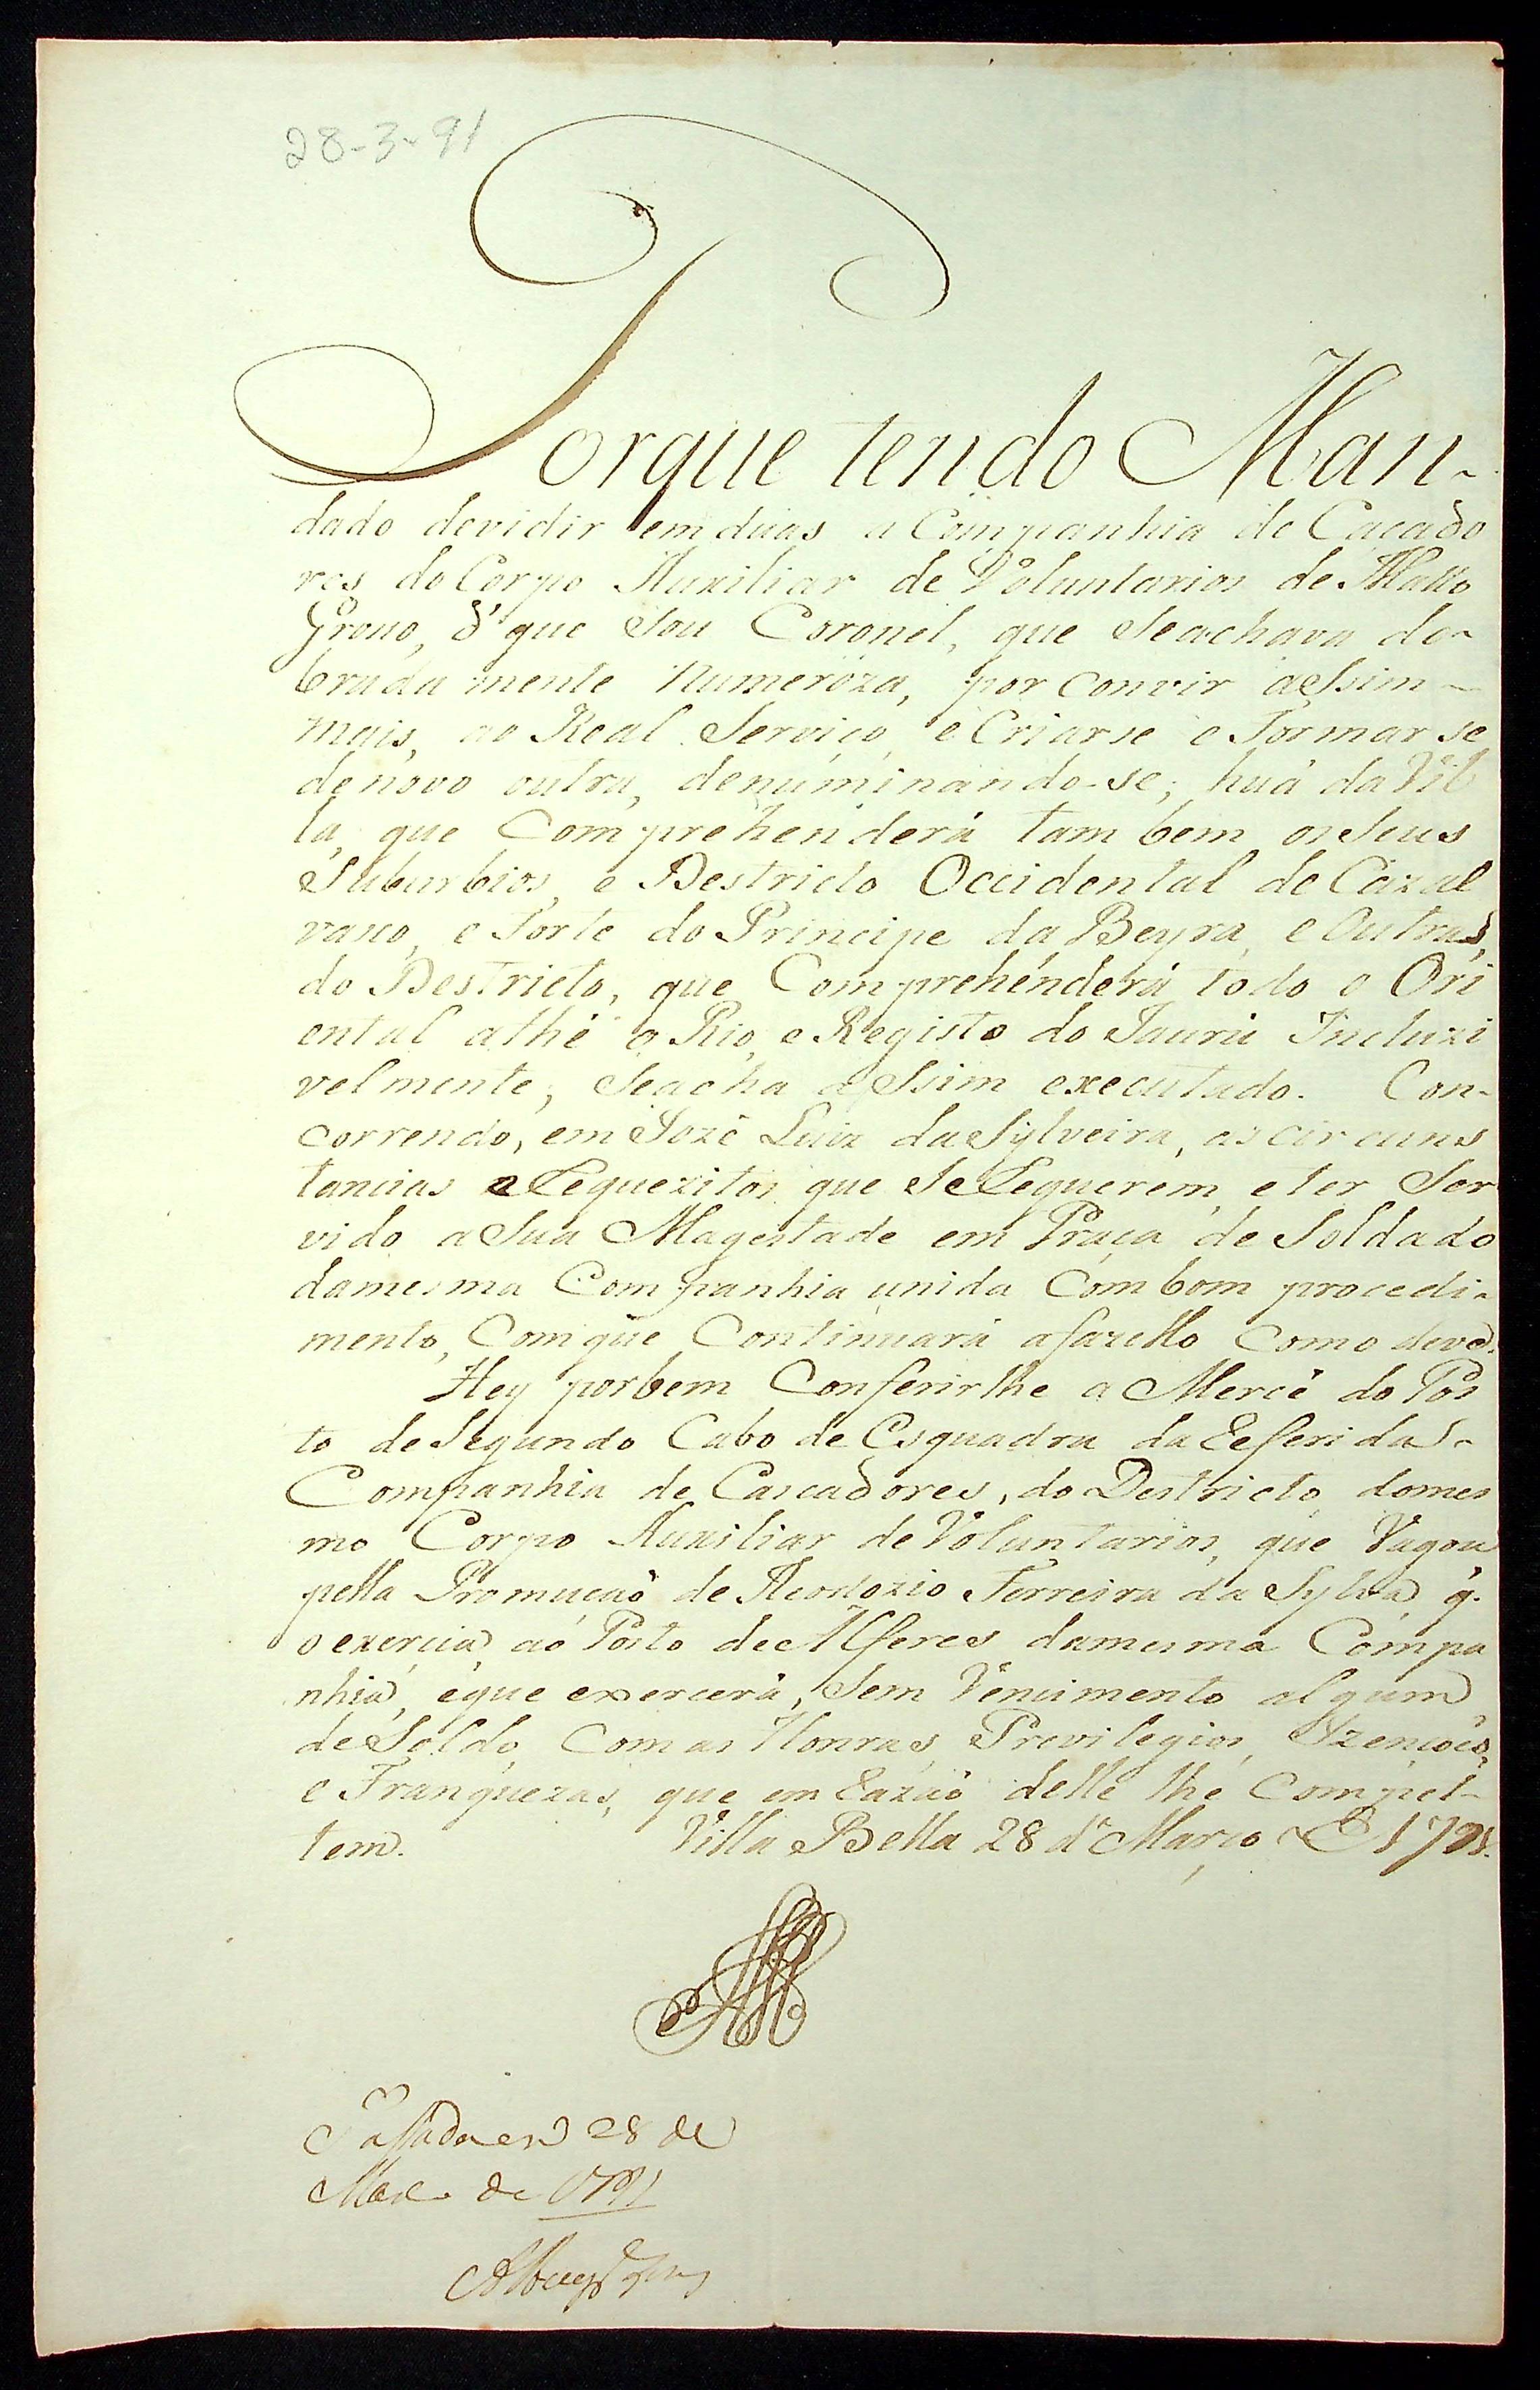 28-3-91
Porque tendo Man-
dado devidir em duas a Companhia de Caçado
res do Corpo Auxiliar de Voluntarios de Matto
Groso, d' que Sou Coronel, que Seachava do-
brada mente Numeróza, por convir aSsim -
mais, ao Real Serviço, e Criarse e Formar se
denovo outra, denuminando-se; huá da Vil
la, que Comprehenderá tam bem os Seus
Suburbios, e Destricto Occidental de Cazal
vasco, e Forte do Principe da Beyra, e Outra,
do Destricto, que Comprehénderá todo o Ori
ental athé o Rio, e Registo do Jaurú Incluzi
velmente; Seacha aSsim executado. Con-
correndo, em Jozé Luiz da Sylveira, as circuns
tancias e Requezitos que Se Requerem, e ter Ser
vido a Sua Magestade em Praça de Soldado
damesma Companhia unida Com bom procedi-
mento, Comque Continuará afazello como deve.
Hey porbem Conferirlhe a Mercê do Pos
to de Segundo Cabo de Esquadra da Referida -
Companhia de Cascadores, do Destricto domes
mo Corpo Auxiliar de Voluntarios, que Vagou
pella Promucaõ de Theodozio Ferreira da Sylva q.
o exercia, ao Posto de Alferes damesma Compa
nhia, eque exercerá, Sem Vencimento algum
de Soldo, Com as Honras, Previlegios, Izencoés,
e Franquezas, que em Razaõ delle lhe Compet-
tem. Villa Bella 28 d' Março de 1791.
Passada em 28 de
Mar.º de 1791